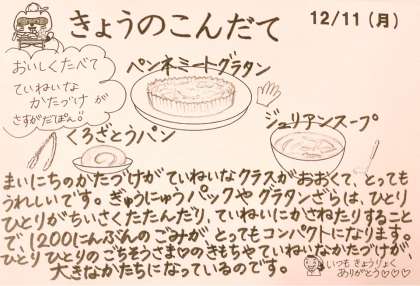 きょうのこんだて
12/11(月)
おいしくたべて
ていねいな
かたづけ が
さすがだぽん!!
ペンネミートグラタン
くろざとうパン
ジュリアンスープ
まいにちのかたづけが ていねいなクラスが おおくて、とっても
うれしいです。ぎゅうにゅうパックや グラタンざらは、ひとり
ひとりが ちいさくたたんだり、ていねいに かさねたりすること
で、1200にんぶんの ごみが とってもコンパクトになります。
ひとりひとりの ごちそうさま♡の きもちや ていねいなかたづけが、
大きなかたちに なっているのです。
いつも きょうりょく
ありがとう♡♡♡